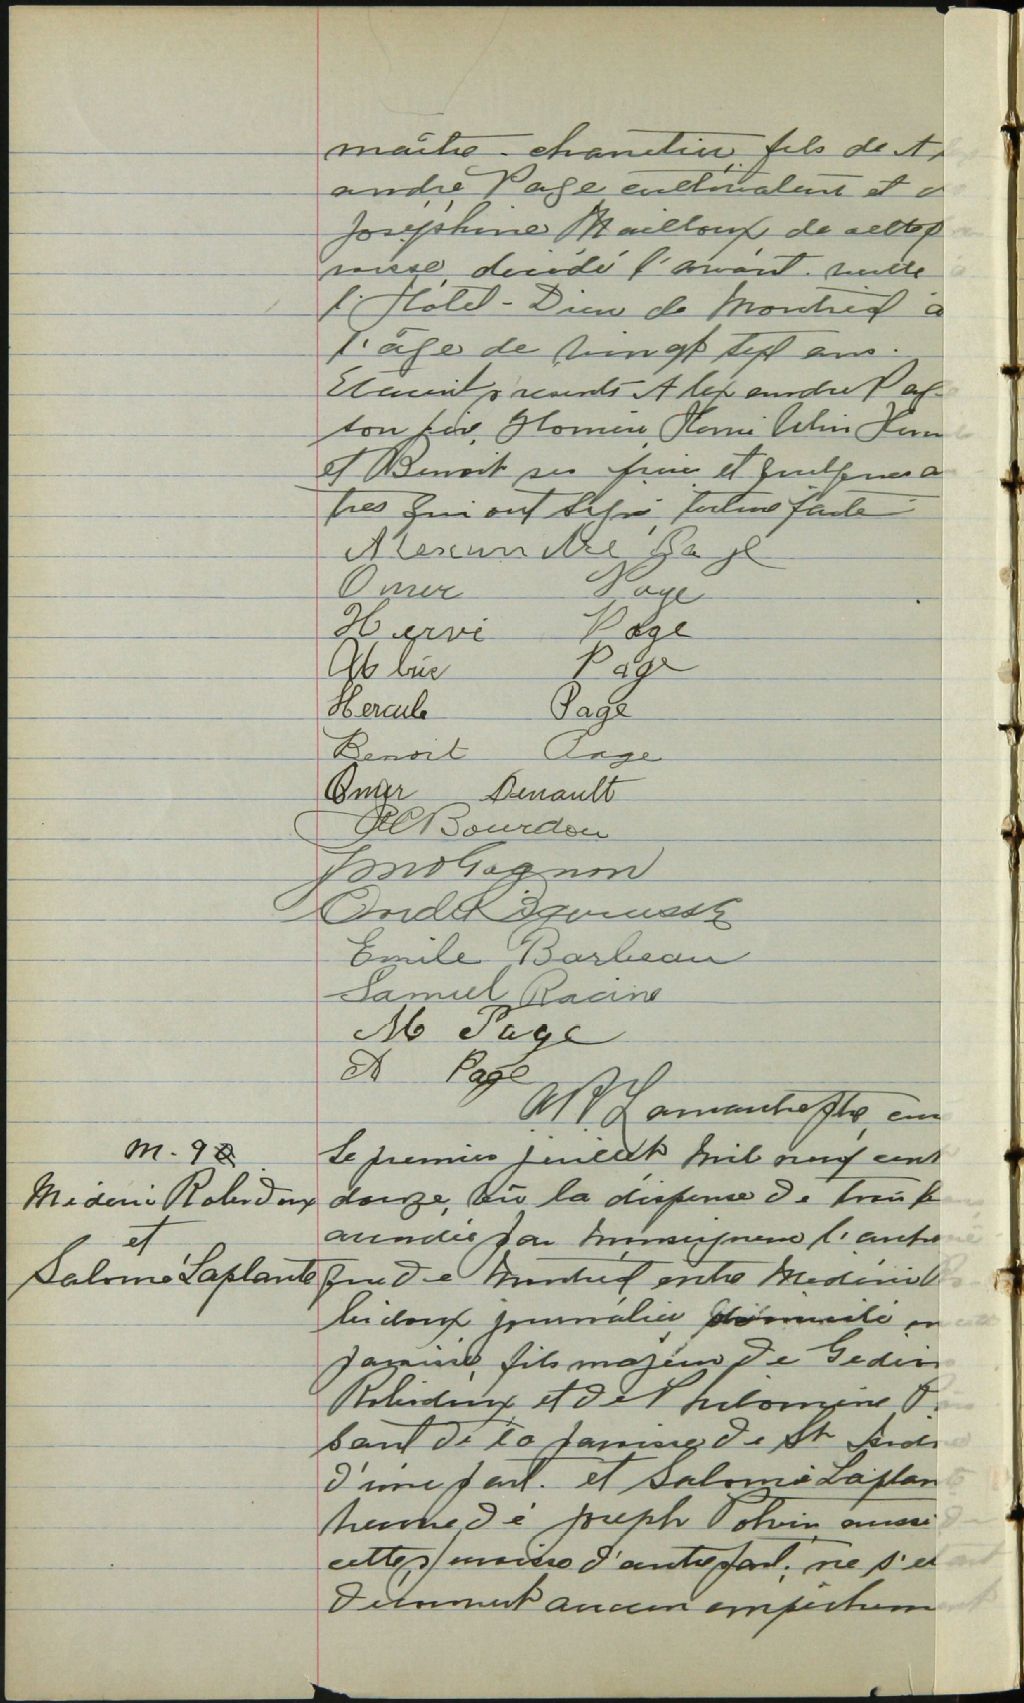 maître-charretier fils de A
andre Page cultivateur et d
Joséphine Mailloux de cette p
roisse décédé l'avant-veille
l'Hôtel-Dieu de Montréal à
l'âge de vingt sept ans.
Etaient présents Alexandre Pag
son père, Homère Henri Albin Hercu
et Benoit ses frères et quelques a
tres qui ont signé, lecture faite
Alexandre Page
Omer Page
Hervé Page
Page
Hercule Page
Benoit Page
Omer Denault
Bourdon
Gagnon

Emile Barbeau
Samuel Racine
M Page
A Page
Lamarche Ptre, cur
M. 9
Médéric Robidoux
et
Salomé Laplante
Le premier juillet mil neuf cent
douze, vu la dispense de trois b
accordée par Monseigneur l'arche
que de Montréal entre Médéric R
bidoux journalier
paroisse, fils majeur de Gédéon
Robidoux et de Philomène P
sant de la paroisse de St
d'une part. et Salomé Laplan
veuve de Joseph Potvin aussi
cette paroisse d'autre part; ne s'et
découvert aucun empêchem